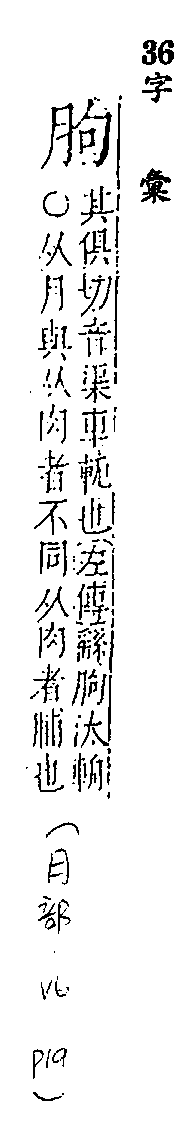 36字彙
朐
其俱切音渠車軶也左傳繇朐汰輈
○从月與从肉者不同从肉者脯也
(月部 · V6 P19)